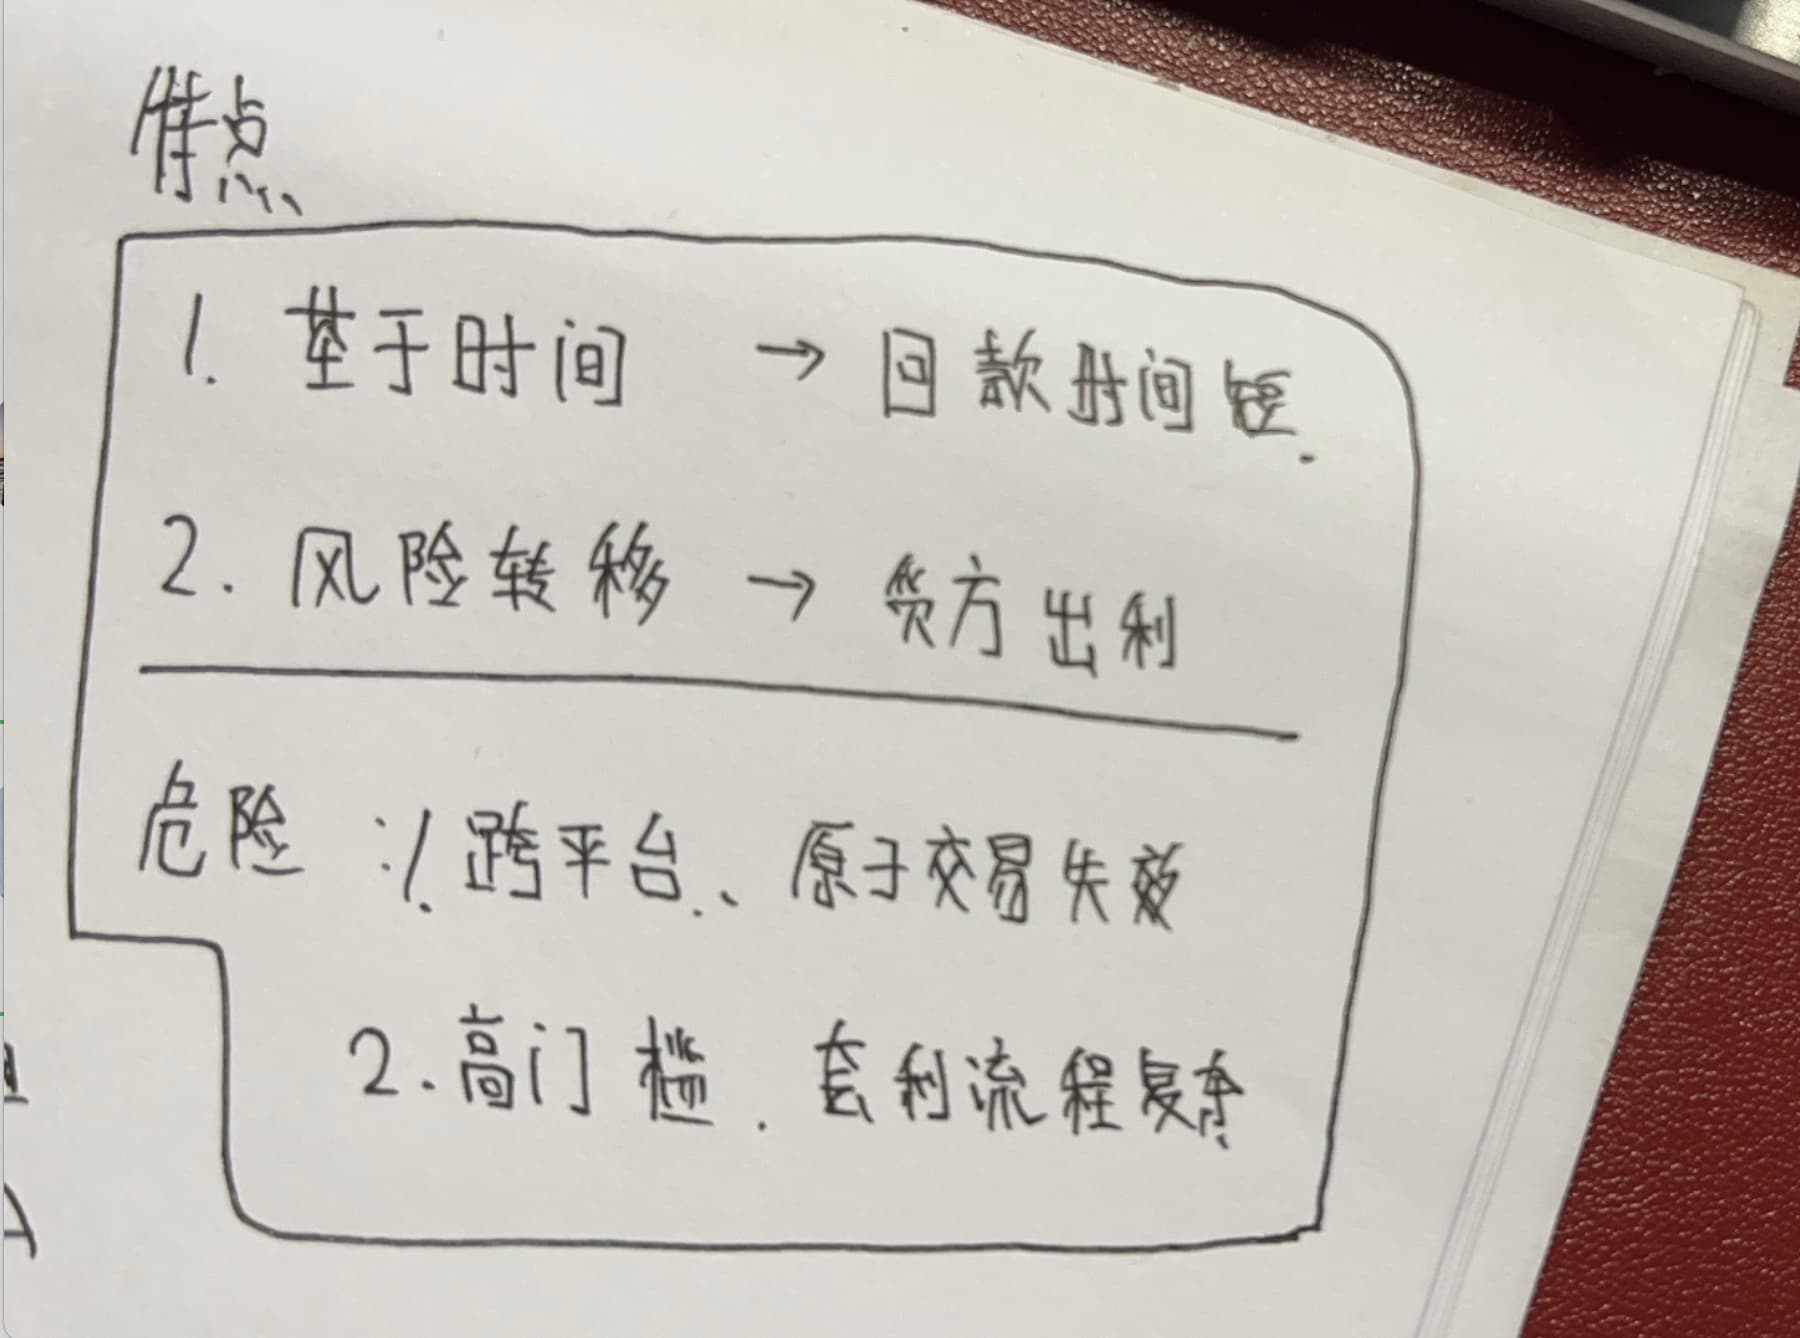 特点
1. 基于时间 → 回款时间短.
2. 风险转移 → 货方出利
危险 : 1. 跨平台.、原子交易失效
2. 高门槛. 套利流程复杂